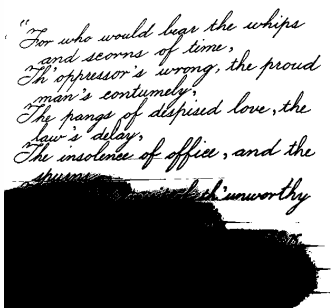 "For who would bear the whips
and scorns of time,
Th'oppressor's wrong, the proud
man's contumely,
The pangs of despised love, the
law's delay,
The insolence of office, and the
spurns
th'unworthy